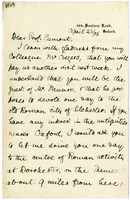 Banbury Road,
Oxford.
April 22/96
Dear Prof. Cumont,
I learn with gladness from my
colleague Mr that you will
pay us another visit next week. I
understand that you will be the
guest of Mr Munro, & that he pro-
poses to devote one day to the
old Roman city of Silchester. If you
have any interest in the antiquities
near Oxford, I would ask you
to let me drive you one day
to the centre of Roman activity
at Dorchester, on the Thames
about 9 miles from here.